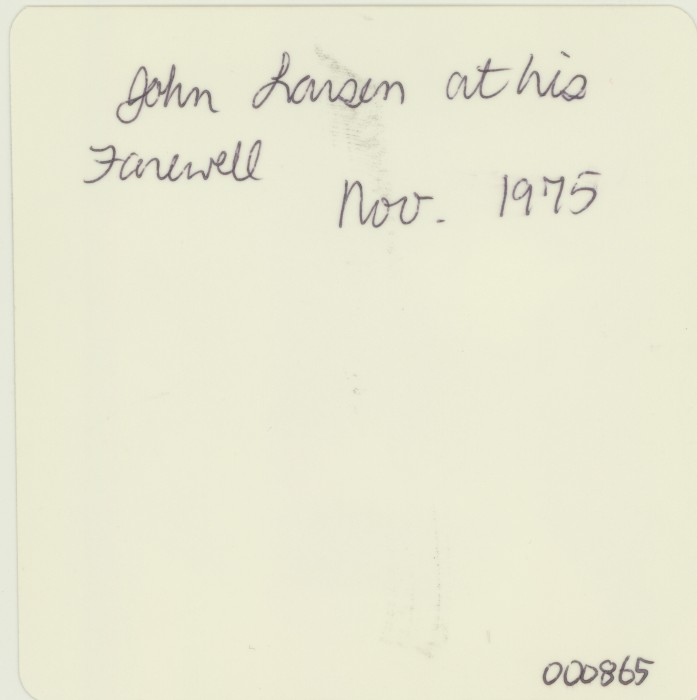 John Larsen at his
Farewell
Nov. 1975
000865